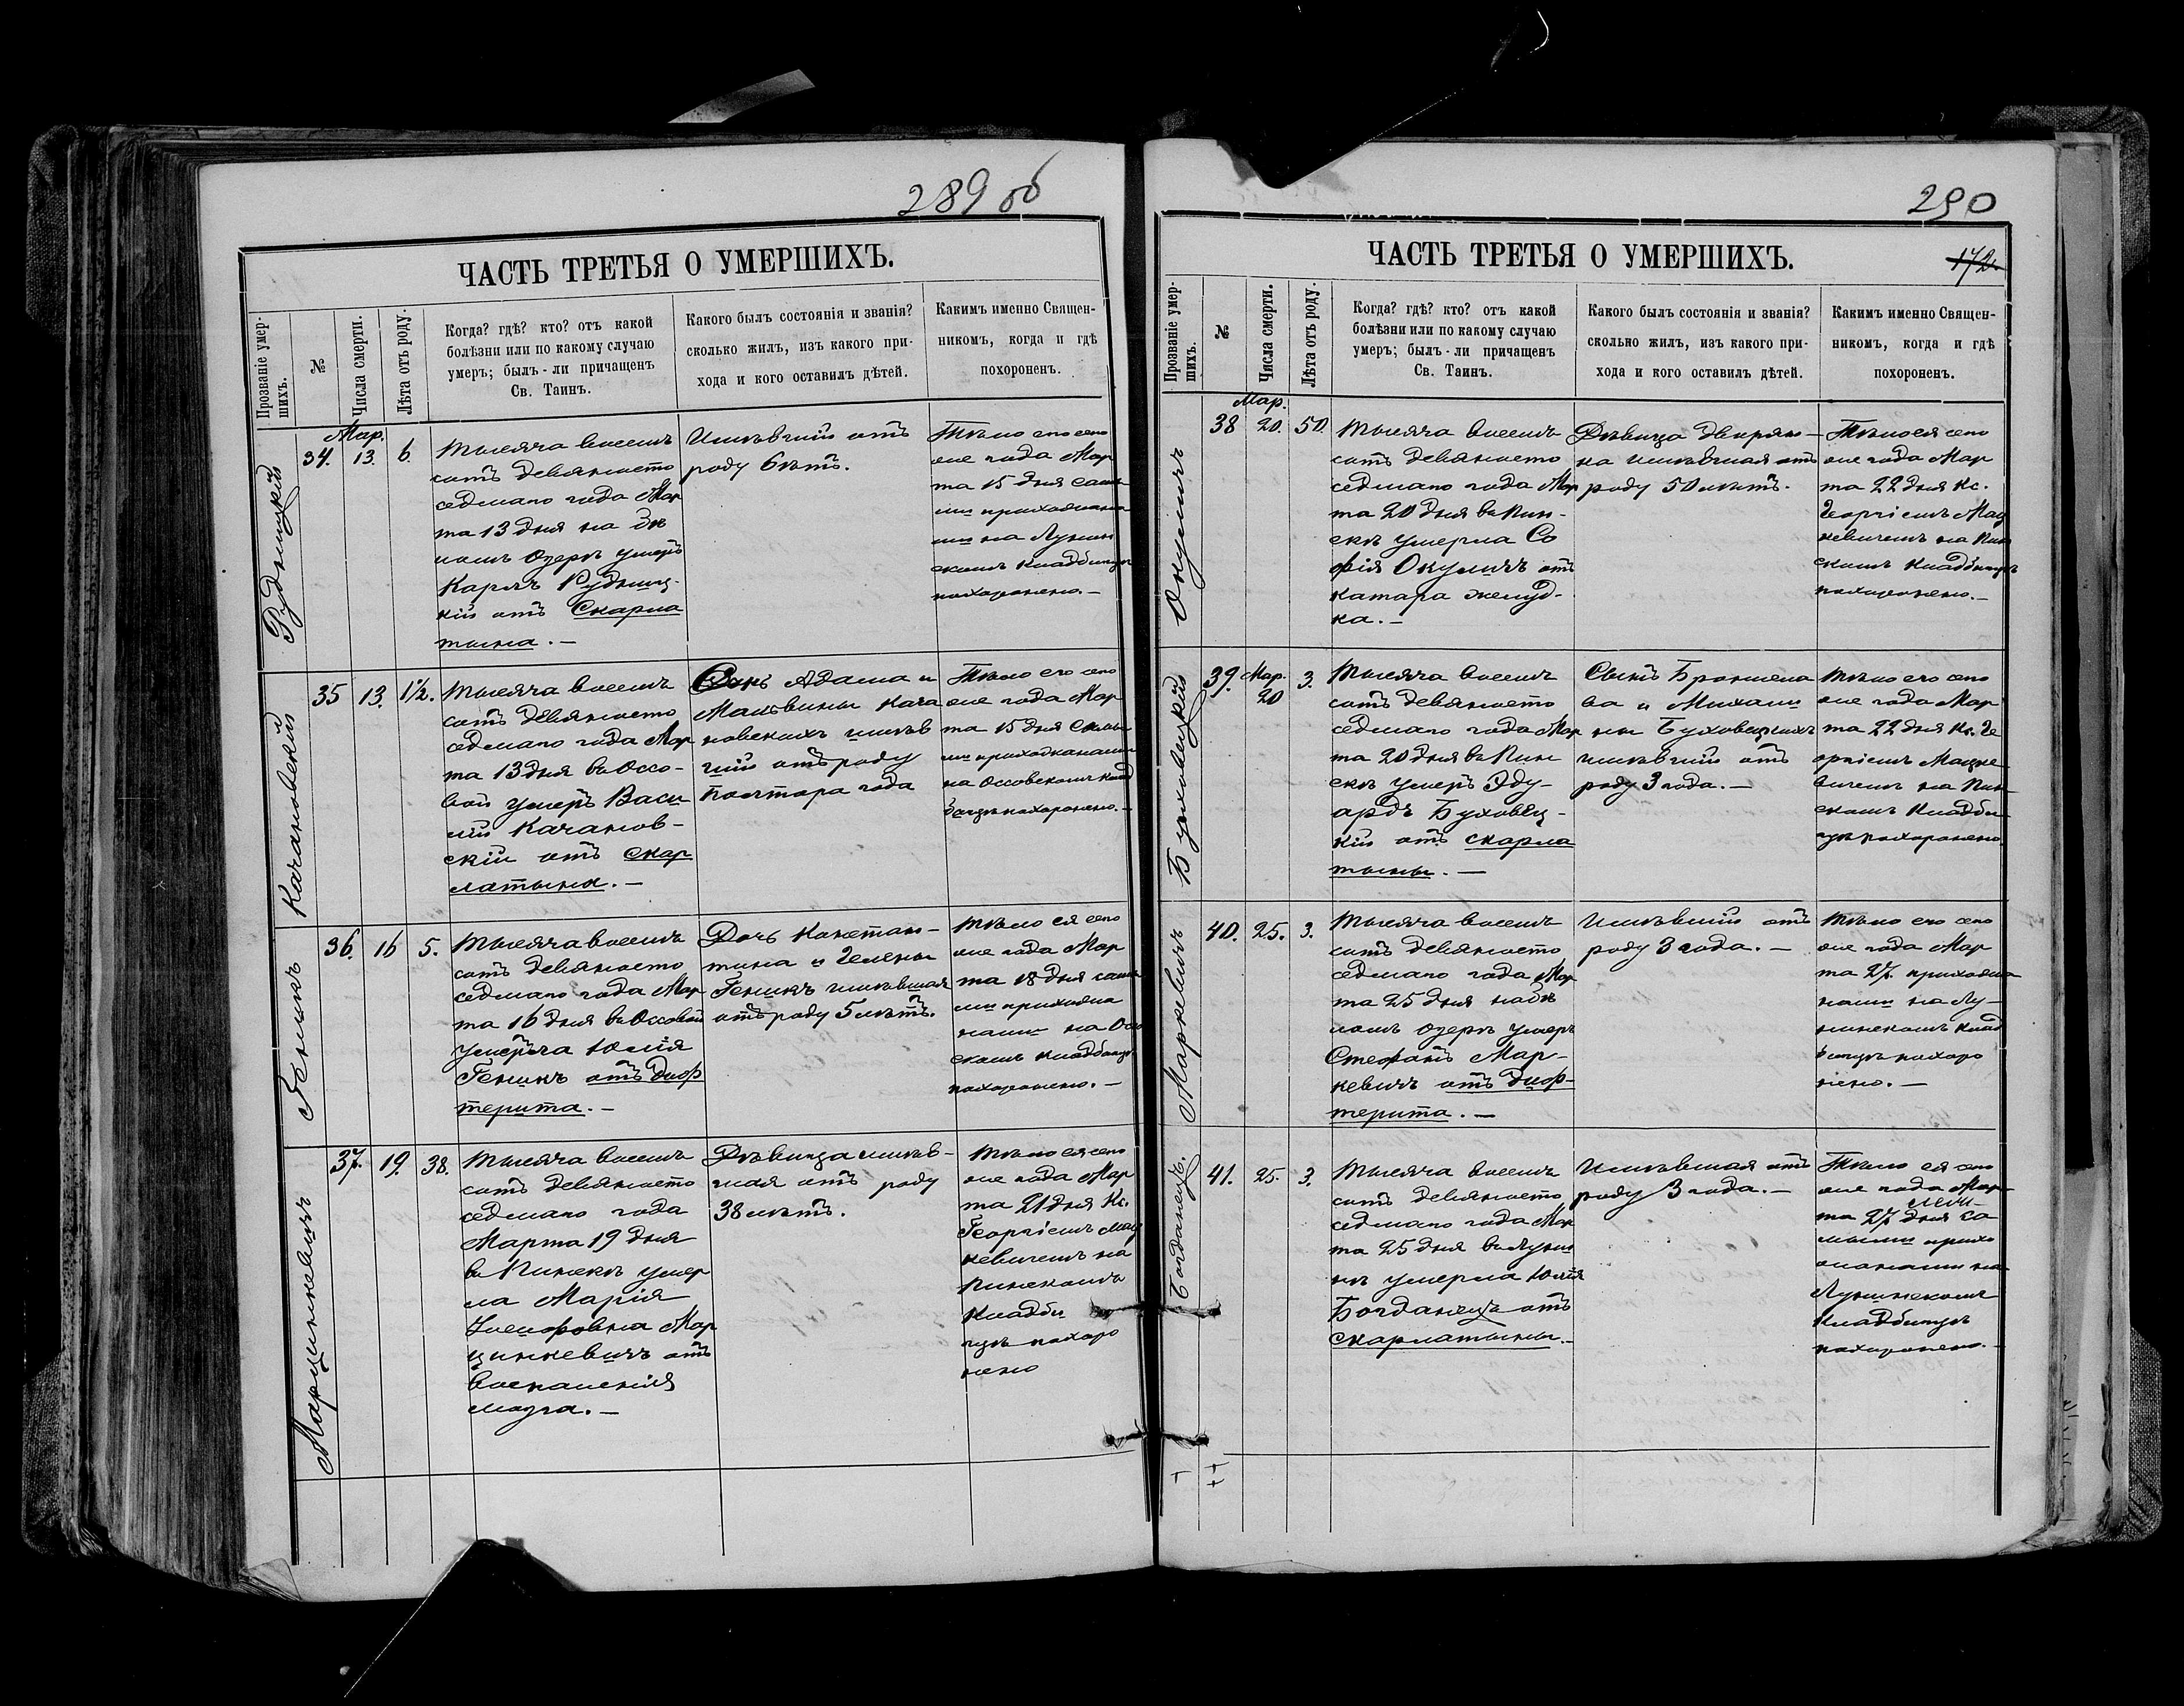 289 об
ЧАСТЬ ТРЕТЬЯ О УМЕРШИХЪ.
Прозваніе умер-
шихъ.
№
Числа смерти.
Лѣта отъ роду.
Когда? гдѣ? кто? отъ какой
болѣзни или по какому случаю
умеръ; былъ-ли причащенъ
Св. Таинъ.
Какого былъ состоянія и званія?
сколько жилъ, изъ какого при-
хода и кого оставилъ дѣтей.
Какимъ именно Священ-
никомъ, когда и гдѣ
похороненъ.
Рудницкій
34.
Мар.
13.
6.
Тысяча восемь
сотъ девяносто
седмаго года Мар
та 13 дня на Бѣ
ломъ Озерѣ умеръ
Карлъ Рудниц-
кій отъ Скарла
тына.—
Имѣвшій отъ
роду 6 лѣтъ.
Тѣло его сего
же года Мар
та 15 дня сами
ми прихожана
ми на Лунин
скомъ Кладбищѣ
похоронено.—
Качановскій
35
13.
1½.
Тысяча восемь
сотъ девяносто
седмаго года Мар
та 13 дня въ Оссо-
вой умеръ Васи
лій Качанов-
скій отъ Скар
латына.—
Сынъ Адама и
Мальвины Кача
новскихъ имѣв
шій отъ роду
Полтора года
Тѣло его сего
же года Мар
та 15 дня самы
ми прихожанами
на Оссовскомъ Клад
бищѣ похоронено.—
Геникъ
36.
16
5.
Тысяча восемь
сотъ девяносто
седмаго года Мар
та 16 дня въ Оссовой
умерла Юлія
Геникъ отъ Диф
терита.—
Дочь Констан-
тина и Гелены
Геникъ имѣвшая
отъ роду 5 лѣтъ.
Тѣло ея сего
же года Мар
та 18 дня сами
ми прихожа
нами на Оссов
скомъ Кладбищѣ
похоронено.—
Марцинкевичъ
37.
19.
38.
Тысяча восемь
сотъ девяносто
седмаго года
Марта 19 дня
въ Пинскѣ умер
ла Марія
Марцинкевичъ отъ
воспаленія
мозга.—
Дѣвица имѣв-
шая отъ роду
38 лѣтъ.
Тѣло ея сего
же года Мар
та 21 дня Кс.
Георгіемъ Мац
кевичемъ на
Пинскомъ
Кладби
щѣ похоро
нено
290
172.
ЧАСТЬ ТРЕТЬЯ О УМЕРШИХЪ.
Прозваніе умер-
шихъ.
№
Числа смерти.
Лѣта отъ роду.
Когда? гдѣ? кто? отъ какой
болѣзни или по какому случаю
умеръ; былъ-ли причащенъ
Св. Таинъ.
Какого былъ состоянія и званія?
сколько жилъ, изъ какого при-
хода и кого оставилъ дѣтей.
Какимъ именно Священ-
никомъ, когда и гдѣ
похороненъ.
Окуличъ
38
Мар.
20.
50.
Тысяча восемь
сотъ девяносто
седмаго года Мар
та 20 дня въ Пин-
скѣ умерла Со
фія Окуличъ отъ
катара желуд-
ка.—
Дѣвица дворян-
ка имѣвшая отъ
роду 50 лѣтъ.
Тѣло ея сего
же года Мар
та 22 дня Кс.
Георгіемъ Мац
кевичемъ на Пин
скомъ Кладбищѣ
похоронено.—
Буховецкій
39.
Мар.
20
3.
Тысяча восемь
сотъ девяносто
седмаго года Мар
та 20 дня въ Пин
скѣ умеръ Эду-
ардъ Буховец-
кій отъ скарла
тыны.—
Сынъ Бронисла
ва и Михали
ны Буховецкихъ
имѣвшій отъ
роду 3 года.—
Тѣло его сего
же года Мар
та 22 дня Кс. Ге
оргіемъ Мацке
вичемъ на Пин-
скомъ Кладби
щѣ похоронено
Маркевичъ
40.
25.
3.
Тысяча восемь
сотъ девяносто
седмаго года Мар
та 25 дня на Бѣ
ломъ Озерѣ умеръ
Стефанъ Мар-
кевичъ отъ Диф-
терита.—
Имѣвшій отъ
роду 3 года.—
Тѣло его сего
же года Мар
та 27. прихожа
нами на Лу-
нинскомъ Клад
бищѣ похоро
нено.—
Богданецъ.
41.
25.
3.
Тысяча восемь
сотъ девяносто
седмаго года Мар
та 25 дня въ Луни
нѣ умерла Юлія
Богданецъ отъ
скарлатыны.—
Имѣвшая отъ
роду 3 года.—
Тѣло ея сего
же года Мар-
та 27 дня са
мыми прихо
жанами на
Лунинскомъ
Кладбищѣ
похоронено.—